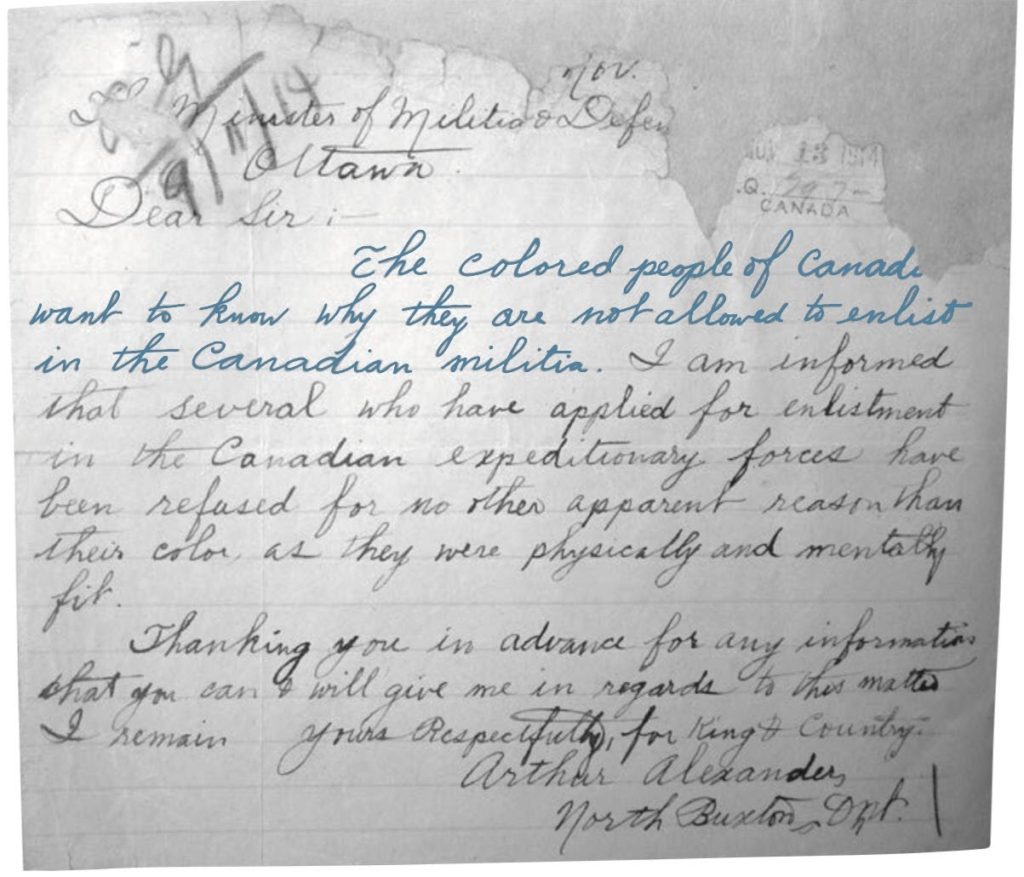 Nov.
Minister of Militia & Defen
Ottawa.
13 1914
.Q. 297-
CANADA
Dear Sir :-
The colored people of Canad
want to know why they are not allowed to enlist
in the Canadian militia. I am informed
that several who have applied for enlistment
in the Canadian expeditionary forces have
been refused for no other apparent reason than
their color, as they were physically and mentally
fit.
Thanking you in advance for any information
that you can & will give me in regards to this matter
I remain yours Respectfully, for King & Country.
Arthur Alexander,
North Buxton, Ont.